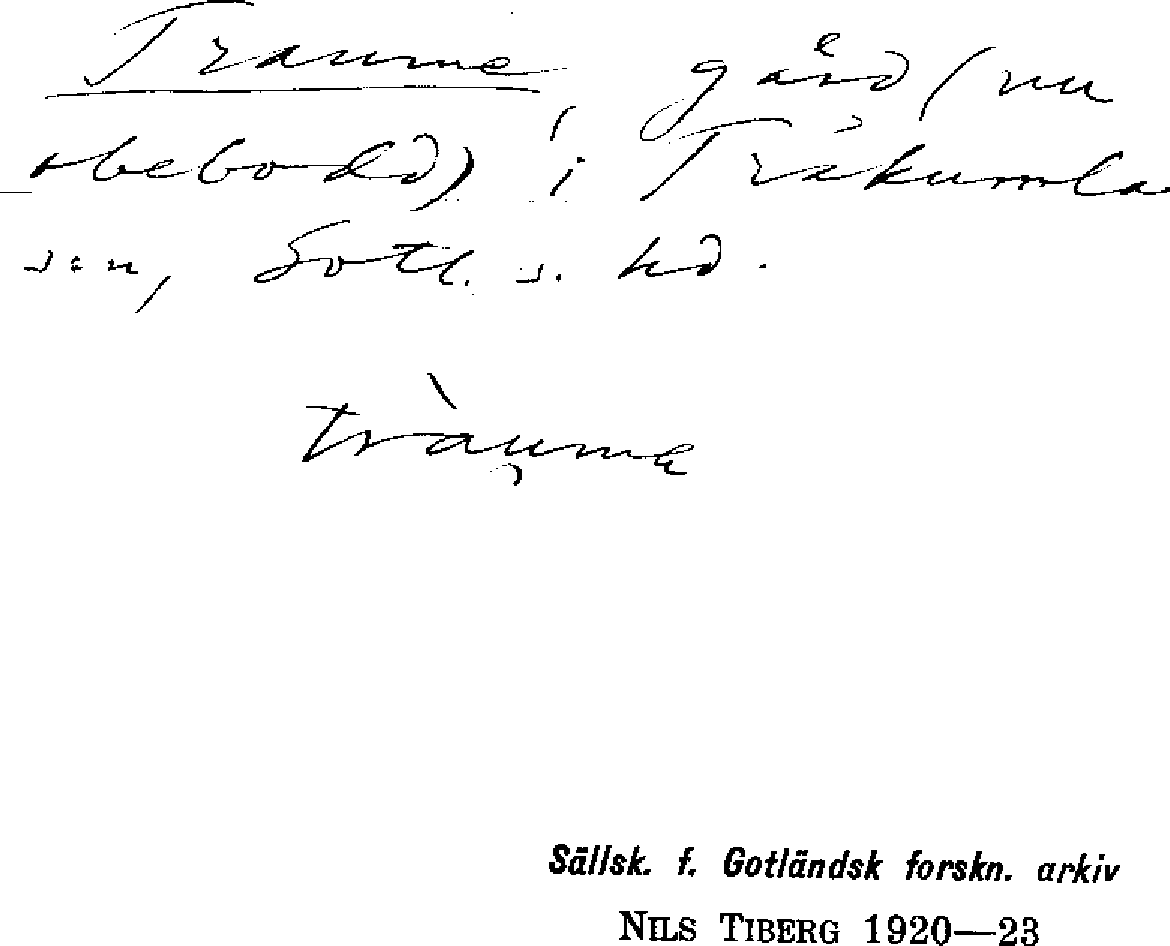 Traume gård (nu
obebodd) i Träkumla
s:n, Gotl. s. hd.
tràu̯ma
Sällsk. f. Gotländsk forskn. arkiv
NILS TIBERG 1920—23